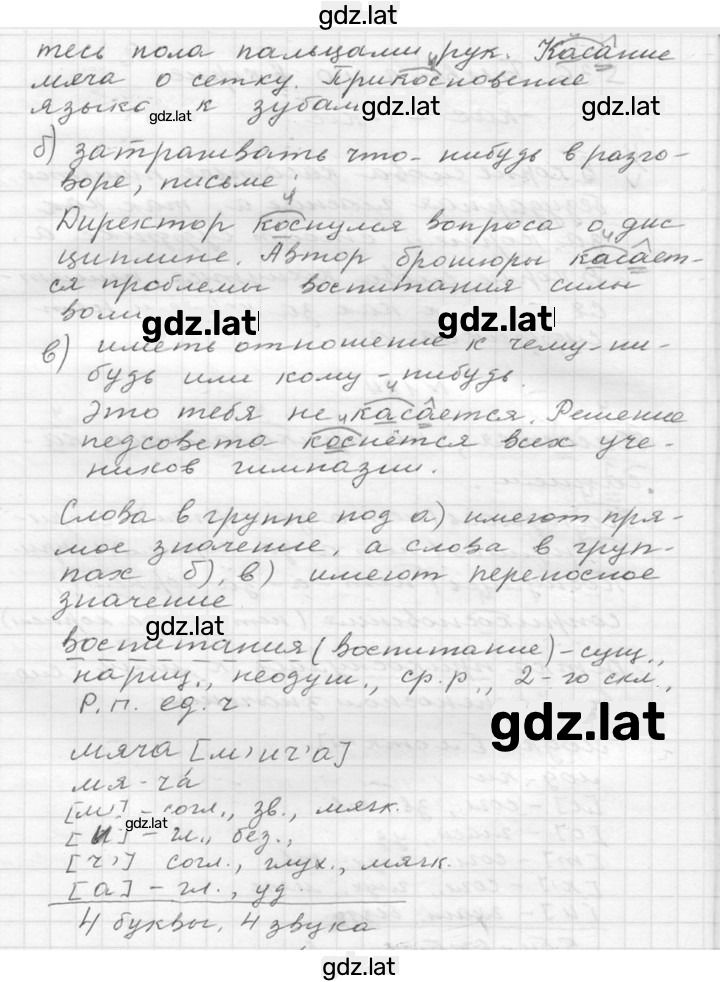 gdz.lat
тесь пола пальцами рук. Касание
мяча о сетку. Прикосновение
языка к зубам
gdz.lat gdz.lat gdz.lat
б) затрагивать что-нибудь в разго-
воре, письме;
Директор коснулся вопроса о дис
циплине. Автор брошюры касает-
ся проблемы воспитания силы
воли
gdz.lat gdz.lat
в) иметь отношение к чему-ни-
будь или кому-нибудь.
Это тебя не касается. Решение
педсовета коснётся всех уче-
ников гимназии.
Слова в группе под а) имеют пря-
мое значение, а слова в груп-
пах б), в) имеют переносное
значение
gdz.lat
воспитания (воспитание) - сущ.,
нариц., неодуш., ср.р., 2-го скл.,
Р.п. ед.ч
gdz.lat
мяча [м'ич'а]
мя-ча́
[м'] - согл., зв., мягк.
gdz.lat
[и] - гл., без.,
[ч'] согл., глух., мягк.
[а] - гл., уд
4 буквы, 4 звука
gdz.lat